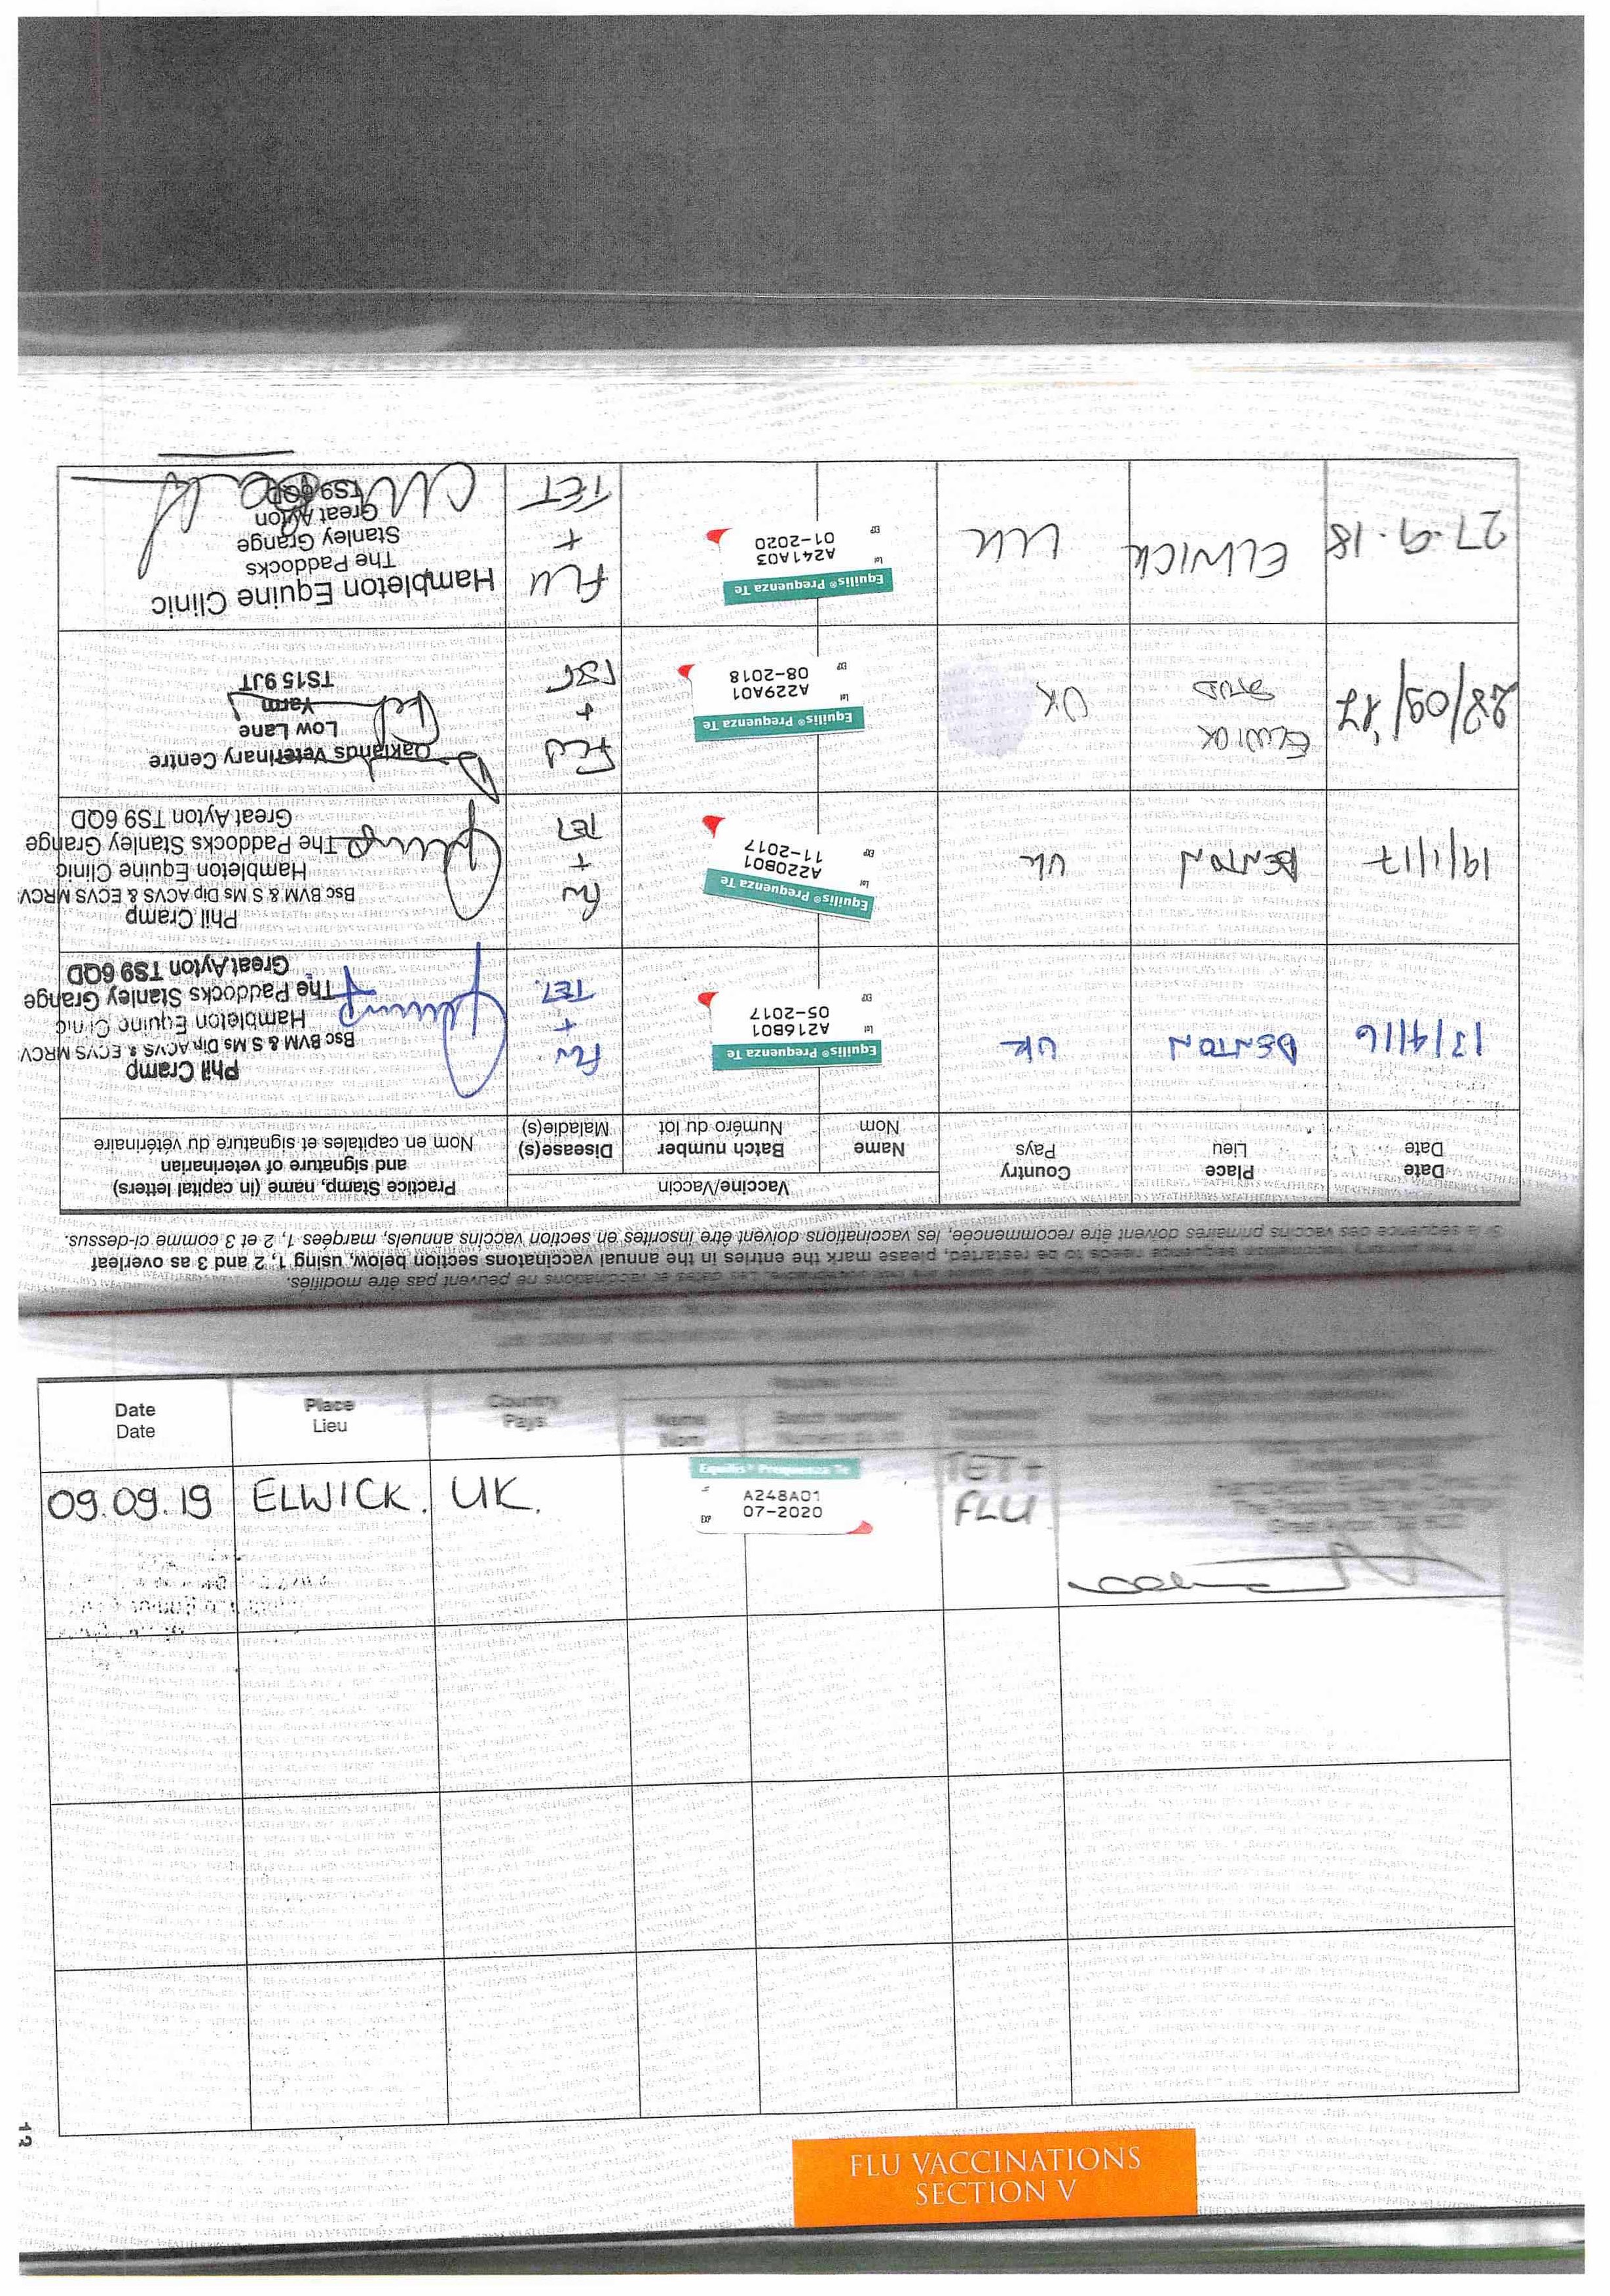 sequence needs to be restarted, please mark the entries in the annual vaccinatons section below, using 1, 2 and 3 as overleaf
Si la séquence des vaccins primaires doivent être recommencée, les vaccinations doivent être inscrites en section vaccins annuels, margées 1, 2 et 3 comme ci-dessus.
Date
Date
Place
Lieu
Country
Pays
Vaccine/Vaccin
Name
Nom
Batch number
Numéro du lot
Disease(s)
Maladie(s)
Practice Stamp, name (in capital letters)
and signature of veterinarian
Nom en capitales et signature du vétérinaire
13/4/16
DENTON
UK
Equilis® Prequenza Te
Lot A216B01
EXP 05-2017
FLU
+
TET.
Phil Cramp
Bsc BVM & S Ms Dip ACVS & ECVS MRCVS
Hambleton Equine Clinic
The Paddocks Stanley Grange
Great Ayton TS9 6QD
19/1/17
DENTON
UK
Equilis® Prequenza Te
Lot A220B01
EXP 11-2017
FLU
+
TET
Phil Cramp
Bsc BVM & S Ms Dip ACVS & ECVS MRCV
Hambleton Equine Clinic
The Paddocks Stanley Grange
Great Ayton TS9 6QD
28/09/'17
ELWICK
STUD
UK
Equilis® Prequenza Te
Lot A229A01
EXP 08-2018
FLU
+
TET
Oaklands Veterinary Centre
Low Lane
Yarm
TS15 9JT
27.9.18
ELWICK
UK
Equilis® Prequenza Te
Lot A241A03
EXP 01-2020
FLU
+
TET
Hambleton Equine Clinic
The Paddocks
Stanley Grange
Great Ayton
TS9 6QD
Date
Date
Place
Lieu
Country
Pays
Name
Nom
Batch number
09.09.19
ELWICK.
UK.
Equilis® Prequenza Te
A248A01
EXP 07-2020
TET+
FLU
Hambleton Equine Clinic
The Paddocks Stanley Grange
Great Ayton TS9 6QD
FLU VACCINATIONS
SECTION V